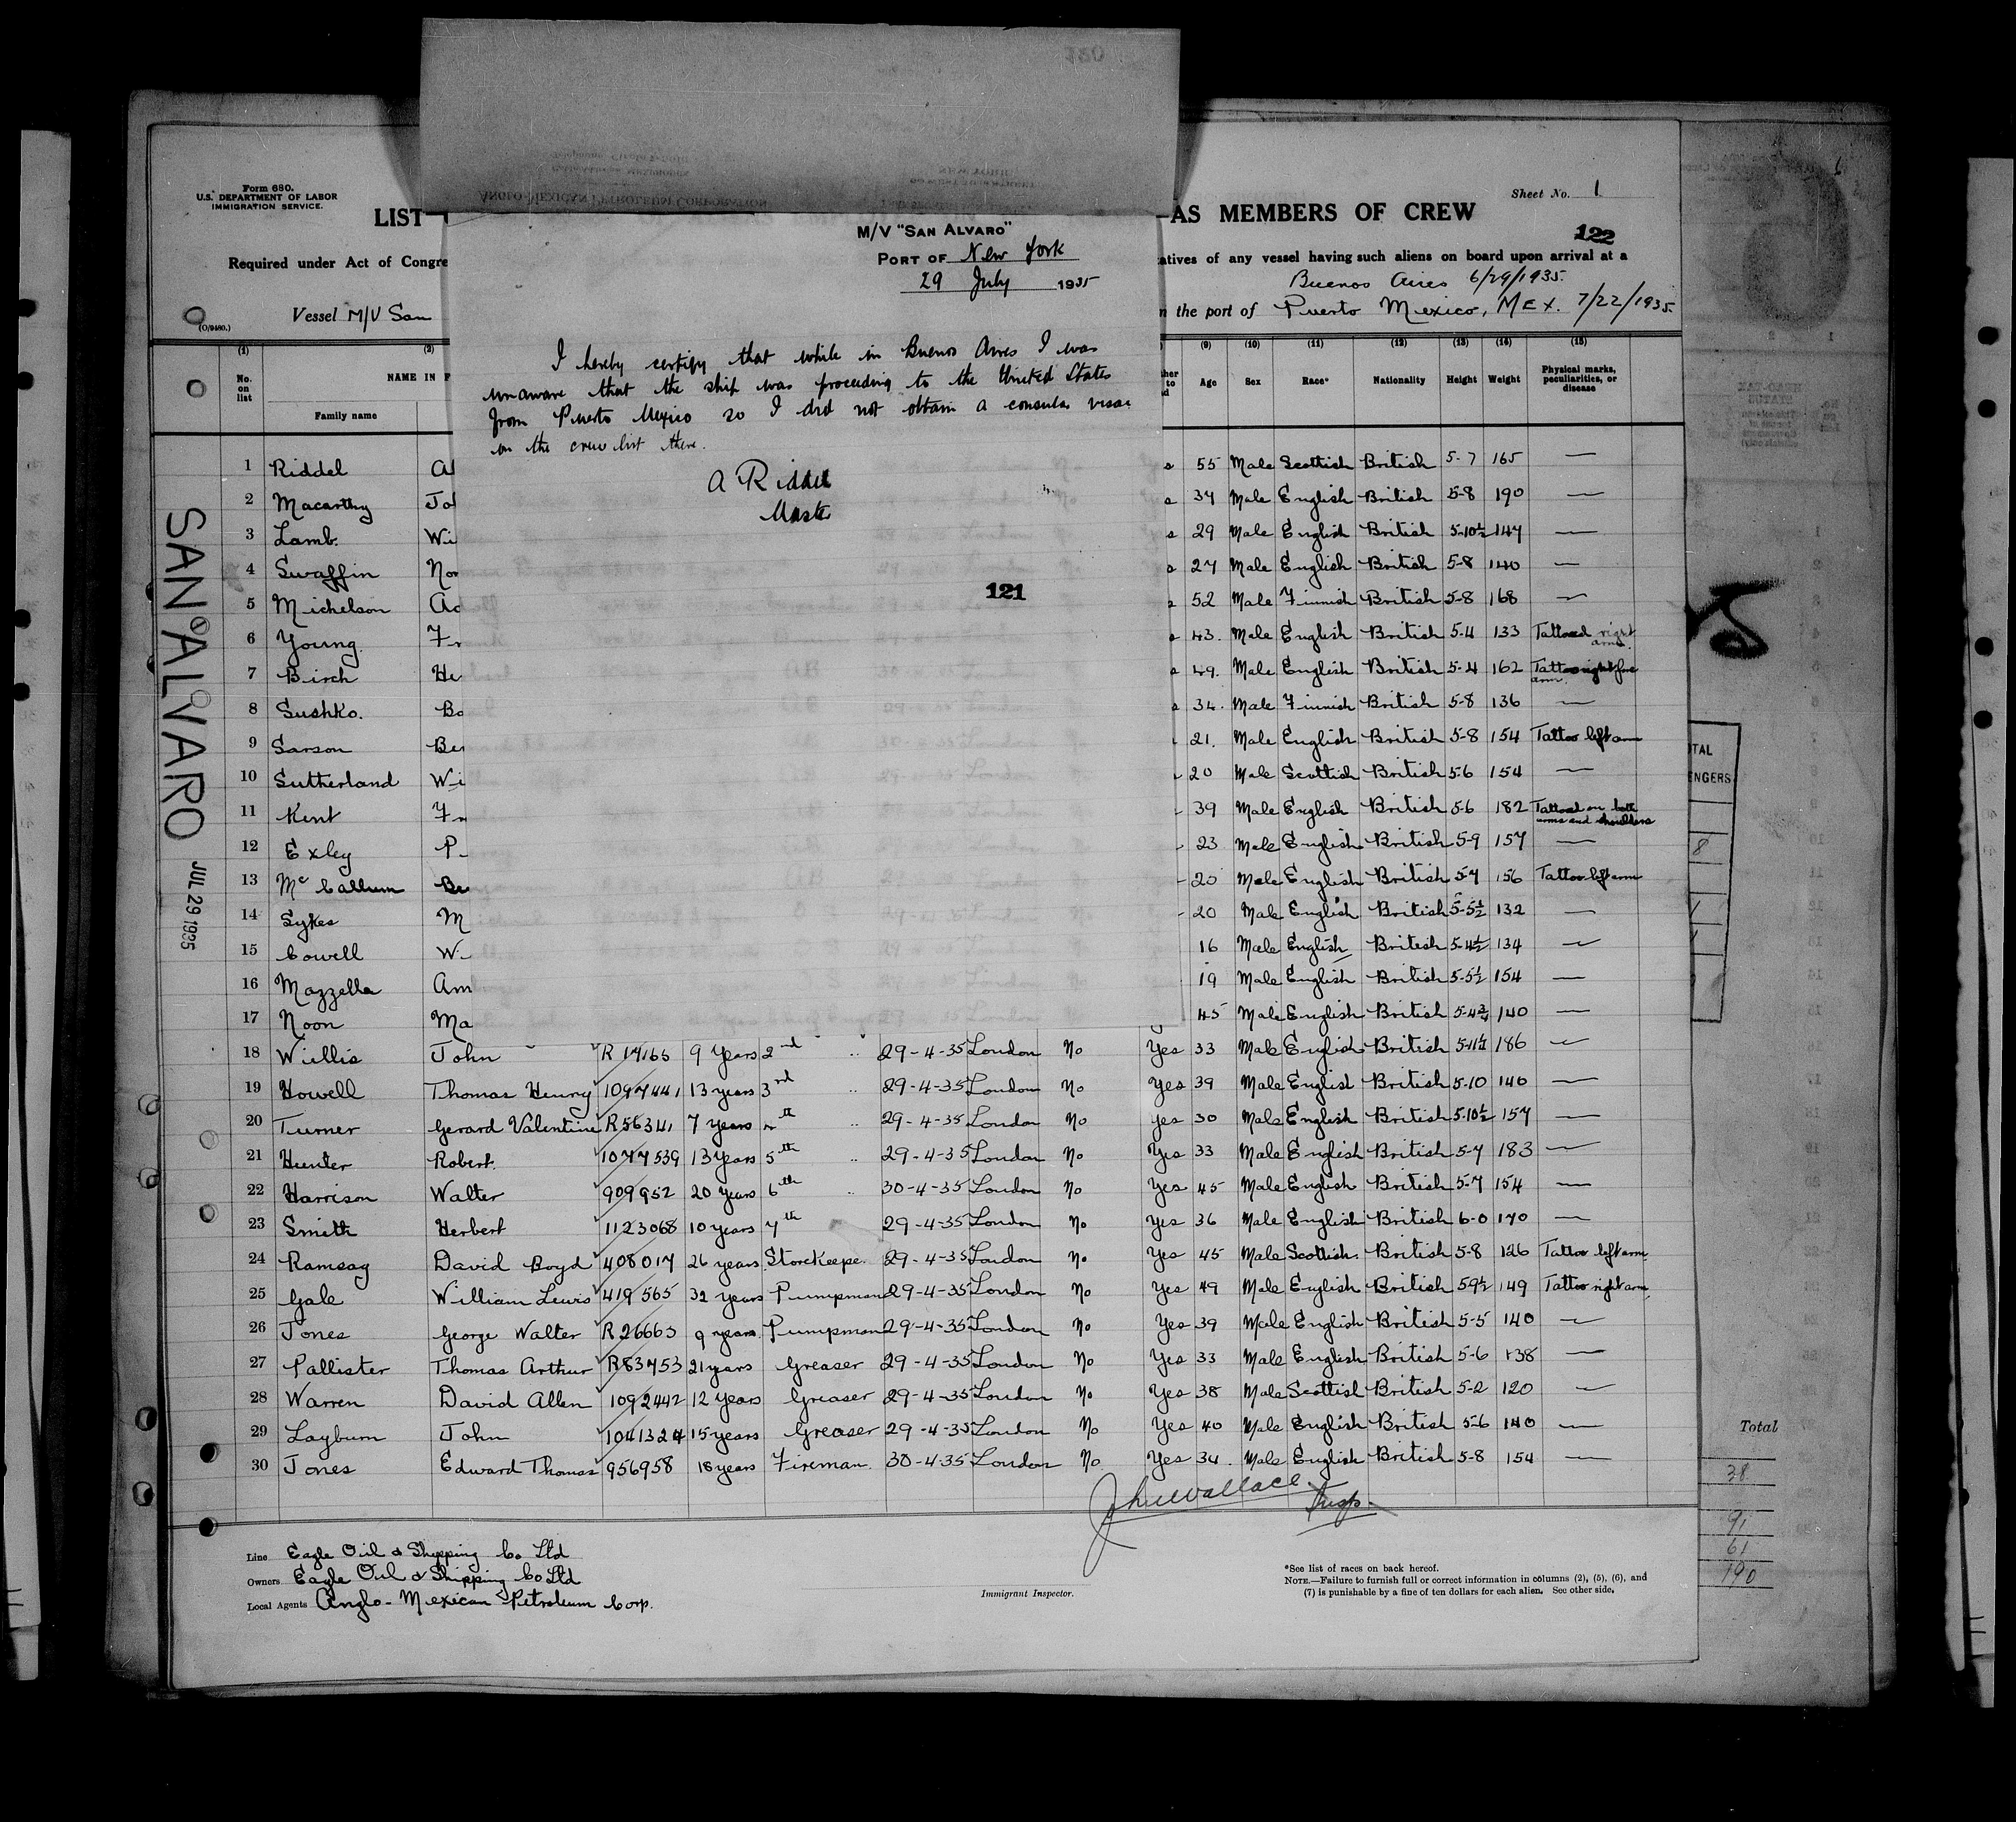 Form 680.
U.S. DEPARTMENT OF LABOR
IMMIGRATION SERVICE.
LIST
AS MEMBERS OF CREW
Sheet No. 1
122
Required under Act of Congre
atives of any vessel having such aliens on board upon arrival at a
Buenos Aires 6/29/1935.
(O/9480.)
Vessel M/V San
the port of Puerto Mexico, MEX. 7/22/1935
M/V "SAN ALVARO"
PORT OF New York
29 July 1935
I hereby certify that while in Buenos Aires I was
unaware that the ship was proceeding to the United States
from Puerto Mexico so I did not obtain a consular visae
on the crew list there.
A Riddel
Master
121
(1) (2) (9) (10) (11) (12) (13) (14) (15)
No. on list NAME IN F Age Sex Race* Nationality Height Weight Physical marks, peculiarities, or disease
Family name
SAN ALVARO
JUL 29 1935
1 Riddel Al 55 Male Scottish British 5-7 165 —
2 Macarthy Jo 34 Male English British 5-8 190 —
3 Lamb. Wi 29 Male English British 5-10½ 147 —
4 Swaffin Nor 27 Male English British 5-8 140 —
5 Michelson Ad 52 Male Finnish British 5-8 168 —
6 Young. Fr 43. Male English British 5-4 133 Tattooed right arm.
7 Birch He 49. Male English British 5-4 162 Tattoo right fore arm.
8 Sushko. Bo 34. Male Finnish British 5-8 136 —
9 Sarson Ber 21. Male English British 5-8 154 Tattoo left arm
10 Sutherland Wi 20 Male Scottish British 5-6 154 —
11 Kent Fr 39 Male English British 5-6 182 Tattooed on both arms and shoulders
12 Exley P 23 Male English British 5-9 157 —
13 McCallum Be 20 Male English British 5-7 156 Tattoo left arm
14 Sykes M 20 Male English British 5-5½ 132 —
15 Cowell W 16 Male English British 5-4½ 134 —
16 Mazzella Am 19 Male English British 5-5½ 154 —
17 Noon Ma 45 Male English British 5-4¾ 140 —
18 Willis John R 17165 9 Years 2nd " 29-4-35 London No Yes 33 Male English British 5-11½ 186 —
19 Howell Thomas Henry 1097441 13 years 3rd " 29-4-35 London No Yes 39 Male English British 5-10 140 —
20 Turner Gerard Valentine R56341 7 years 4th " 29-4-35 London No Yes 30 Male English British 5-10½ 157 —
21 Hunter Robert. 1077539 13 Years 5th " 29-4-35 London No Yes 33 Male English British 5-7 183 —
22 Harrison Walter 909952 20 years 6th " 30-4-35 London No Yes 45 Male English British 5-7 154 —
23 Smith Herbert 1123068 10 years 7th 29-4-35 London No Yes 36 Male English British 6-0 170 —
24 Ramsay David Boyd 408017 26 years Storekeeper 29-4-35 London No Yes 45 Male Scottish. British 5-8 126 Tattoo left arm
25 Gale William Lewis 419565 32 years Pumpman 29-4-35 London No Yes 49 Male English British 5-9½ 149 Tattoo right arm
26 Jones George Walter R 26663 9 years. Pumpman 29-4-35 London No Yes 39 Male English British 5-5 140 —
27 Pallister Thomas Arthur R83753 21 years Greaser 29-4-35 London No Yes 33 Male English British 5-6 138 —
28 Warren David Allen 1092442 12 Years Greaser 29-4-35 London No Yes 38 Male Scottish British 5-2 120 —
29 Layburn John 1041324 15 years Greaser 29-4-35 London No Yes 40 Male English British 5-6 140 —
30 Jones Edward Thomas 956958 18 years Fireman. 30-4-35 London No Yes 34. Male English British 5-8 154 —
Jhn Wallace Insp.
Line Eagle Oil & Shipping Co Ltd
Owners Eagle Oil & Shipping Co Ltd
Local Agents Anglo-Mexican Petroleum Corp.
Immigrant Inspector.
*See list of races on back hereof.
NOTE.—Failure to furnish full or correct information in columns (2), (5), (6), and
(7) is punishable by a fine of ten dollars for each alien. See other side.
TAL
ENGERS
8
Total
38
91
61
190